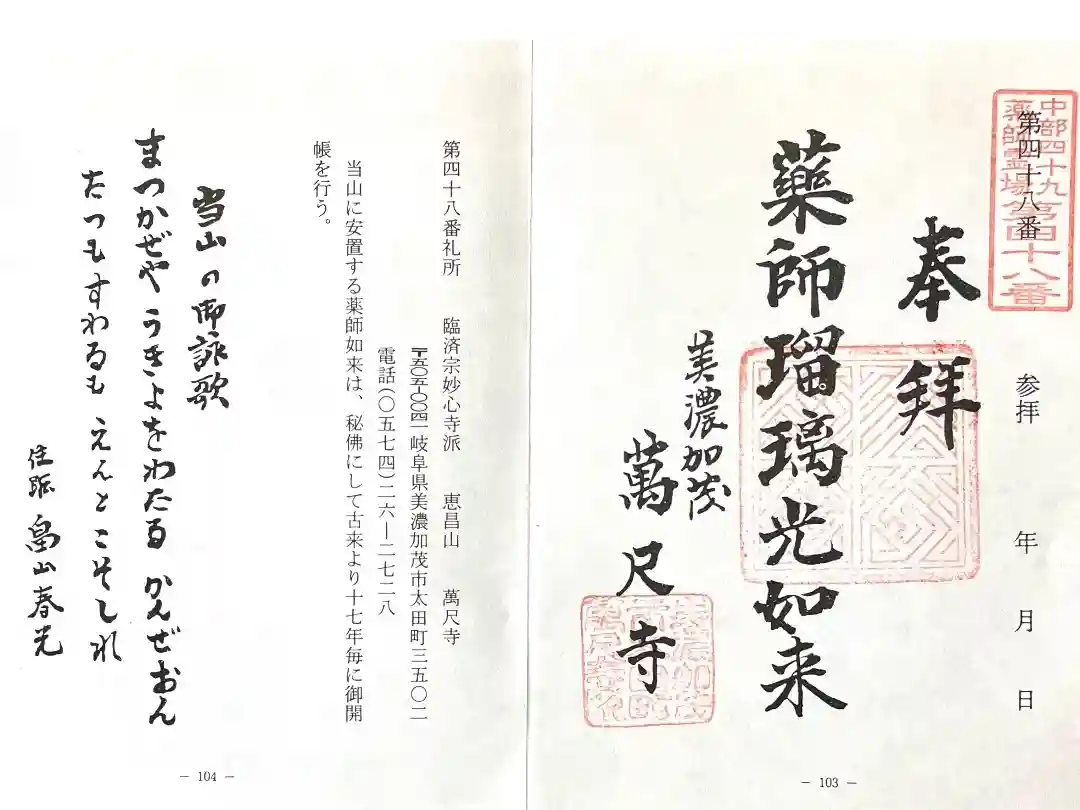 中部四十九
薬師霊場第四十八番
第四十八番
参拝 年 月 日
奉拝
薬師瑠璃光如来
美濃加茂
萬尺寺
− 103 −
第四十八番札所 臨済宗妙心寺派 恵昌山 萬尺寺
〒五〇五-〇〇四一岐阜県美濃加茂市太田町三五〇二
電話(〇五七四)二六―二七二八
当山に安置する薬師如来は、秘佛にして古来より十七年毎に御開
帳を行う。
当山の御詠歌
まつかぜや うきよをわたる かんぜおん
たつもすわるも えんとこそしれ
住職 畠山春光
− 104 −